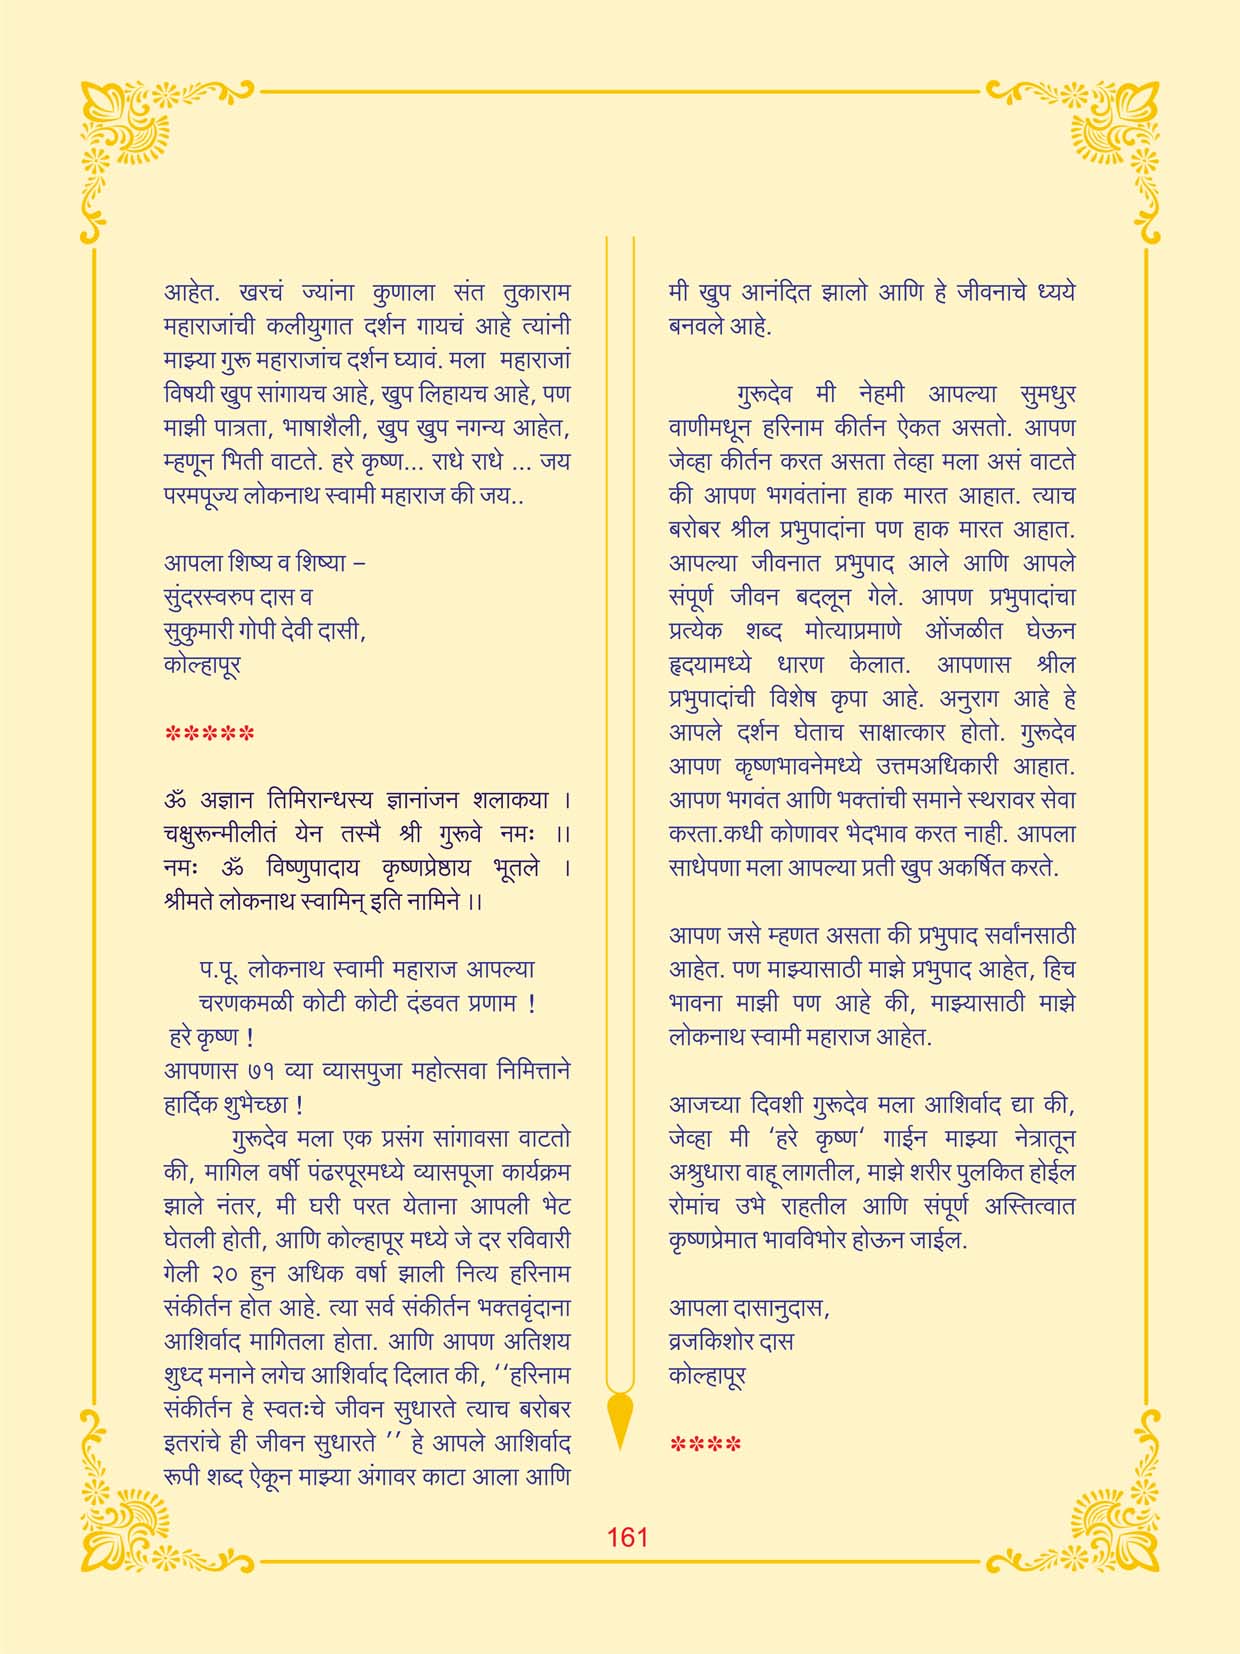 आहेत. खरचं ज्यांना कुणाला संत तुकाराम
महाराजांची कलीयुगात दर्शन गायचं आहे त्यांनी
माझ्या गुरू महाराजांच दर्शन घ्यावं. मला महाराजां
विषयी खुप सांगायच आहे, खुप लिहायच आहे, पण
माझी पात्रता, भाषाशैली, खुप खुप नगन्य आहेत,
म्हणून भिती वाटते. हरे कृष्ण... राधे राधे ... जय
परमपूज्य लोकनाथ स्वामी महाराज की जय..
आपला शिष्य व शिष्या –
सुंदरस्वरुप दास व
सुकुमारी गोपी देवी दासी,
कोल्हापूर
*****
ॐ अज्ञान तिमिरान्धस्य ज्ञानांजन शलाकया ।
चक्षुरून्मीलीतं येन तस्मै श्री गुरूवे नमः ।।
नमः ॐ विष्णुपादाय कृष्णप्रेष्ठाय भूतले ।
श्रीमते लोकनाथ स्वामिन् इति नामिने ।।
प.पू. लोकनाथ स्वामी महाराज आपल्या
चरणकमळी कोटी कोटी दंडवत प्रणाम !
हरे कृष्ण !
आपणास ७१ व्या व्यासपुजा महोत्सवा निमित्ताने
हार्दिक शुभेच्छा !
गुरूदेव मला एक प्रसंग सांगावसा वाटतो
की, मागिल वर्षी पंढरपूरमध्ये व्यासपूजा कार्यक्रम
झाले नंतर, मी घरी परत येताना आपली भेट
घेतली होती, आणि कोल्हापूर मध्ये जे दर रविवारी
गेली २० हुन अधिक वर्षा झाली नित्य हरिनाम
संकीर्तन होत आहे. त्या सर्व संकीर्तन भक्तवृंदाना
आशिर्वाद मागितला होता. आणि आपण अतिशय
शुध्द मनाने लगेच आशिर्वाद दिलात की, ‘‘हरिनाम
संकीर्तन हे स्वतःचे जीवन सुधारते त्याच बरोबर
इतरांचे ही जीवन सुधारते ’’ हे आपले आशिर्वाद
रूपी शब्द ऐकून माझ्या अंगावर काटा आला आणि
मी खुप आनंदित झालो आणि हे जीवनाचे ध्यये
बनवले आहे.
गुरूदेव मी नेहमी आपल्या सुमधुर
वाणीमधून हरिनाम कीर्तन ऐकत असतो. आपण
जेव्हा कीर्तन करत असता तेव्हा मला असं वाटते
की आपण भगवंतांना हाक मारत आहात. त्याच
बरोबर श्रील प्रभुपादांना पण हाक मारत आहात.
आपल्या जीवनात प्रभुपाद आले आणि आपले
संपूर्ण जीवन बदलून गेले. आपण प्रभुपादांचा
प्रत्येक शब्द मोत्याप्रमाणे ओंजळीत घेऊन
हृदयामध्ये धारण केलात. आपणास श्रील
प्रभुपादांची विशेष कृपा आहे. अनुराग आहे हे
आपले दर्शन घेताच साक्षात्कार होतो. गुरूदेव
आपण कृष्णभावनेमध्ये उत्तमअधिकारी आहात.
आपण भगवंत आणि भक्तांची समाने स्थरावर सेवा
करता.कधी कोणावर भेदभाव करत नाही. आपला
साधेपणा मला आपल्या प्रती खुप अकर्षित करते.
आपण जसे म्हणत असता की प्रभुपाद सर्वांनसाठी
आहेत. पण माझ्यासाठी माझे प्रभुपाद आहेत, हिच
भावना माझी पण आहे की, माझ्यासाठी माझे
लोकनाथ स्वामी महाराज आहेत.
आजच्या दिवशी गुरूदेव मला आशिर्वाद द्या की,
जेव्हा मी ‘हरे कृष्ण‘ गाईन माझ्या नेत्रातून
अश्रुधारा वाहू लागतील, माझे शरीर पुलकित होईल
रोमांच उभे राहतील आणि संपूर्ण अस्तित्वात
कृष्णप्रेमात भावविभोर होऊन जाईल.
आपला दासानुदास,
व्रजकिशोर दास
कोल्हापूर
****
161